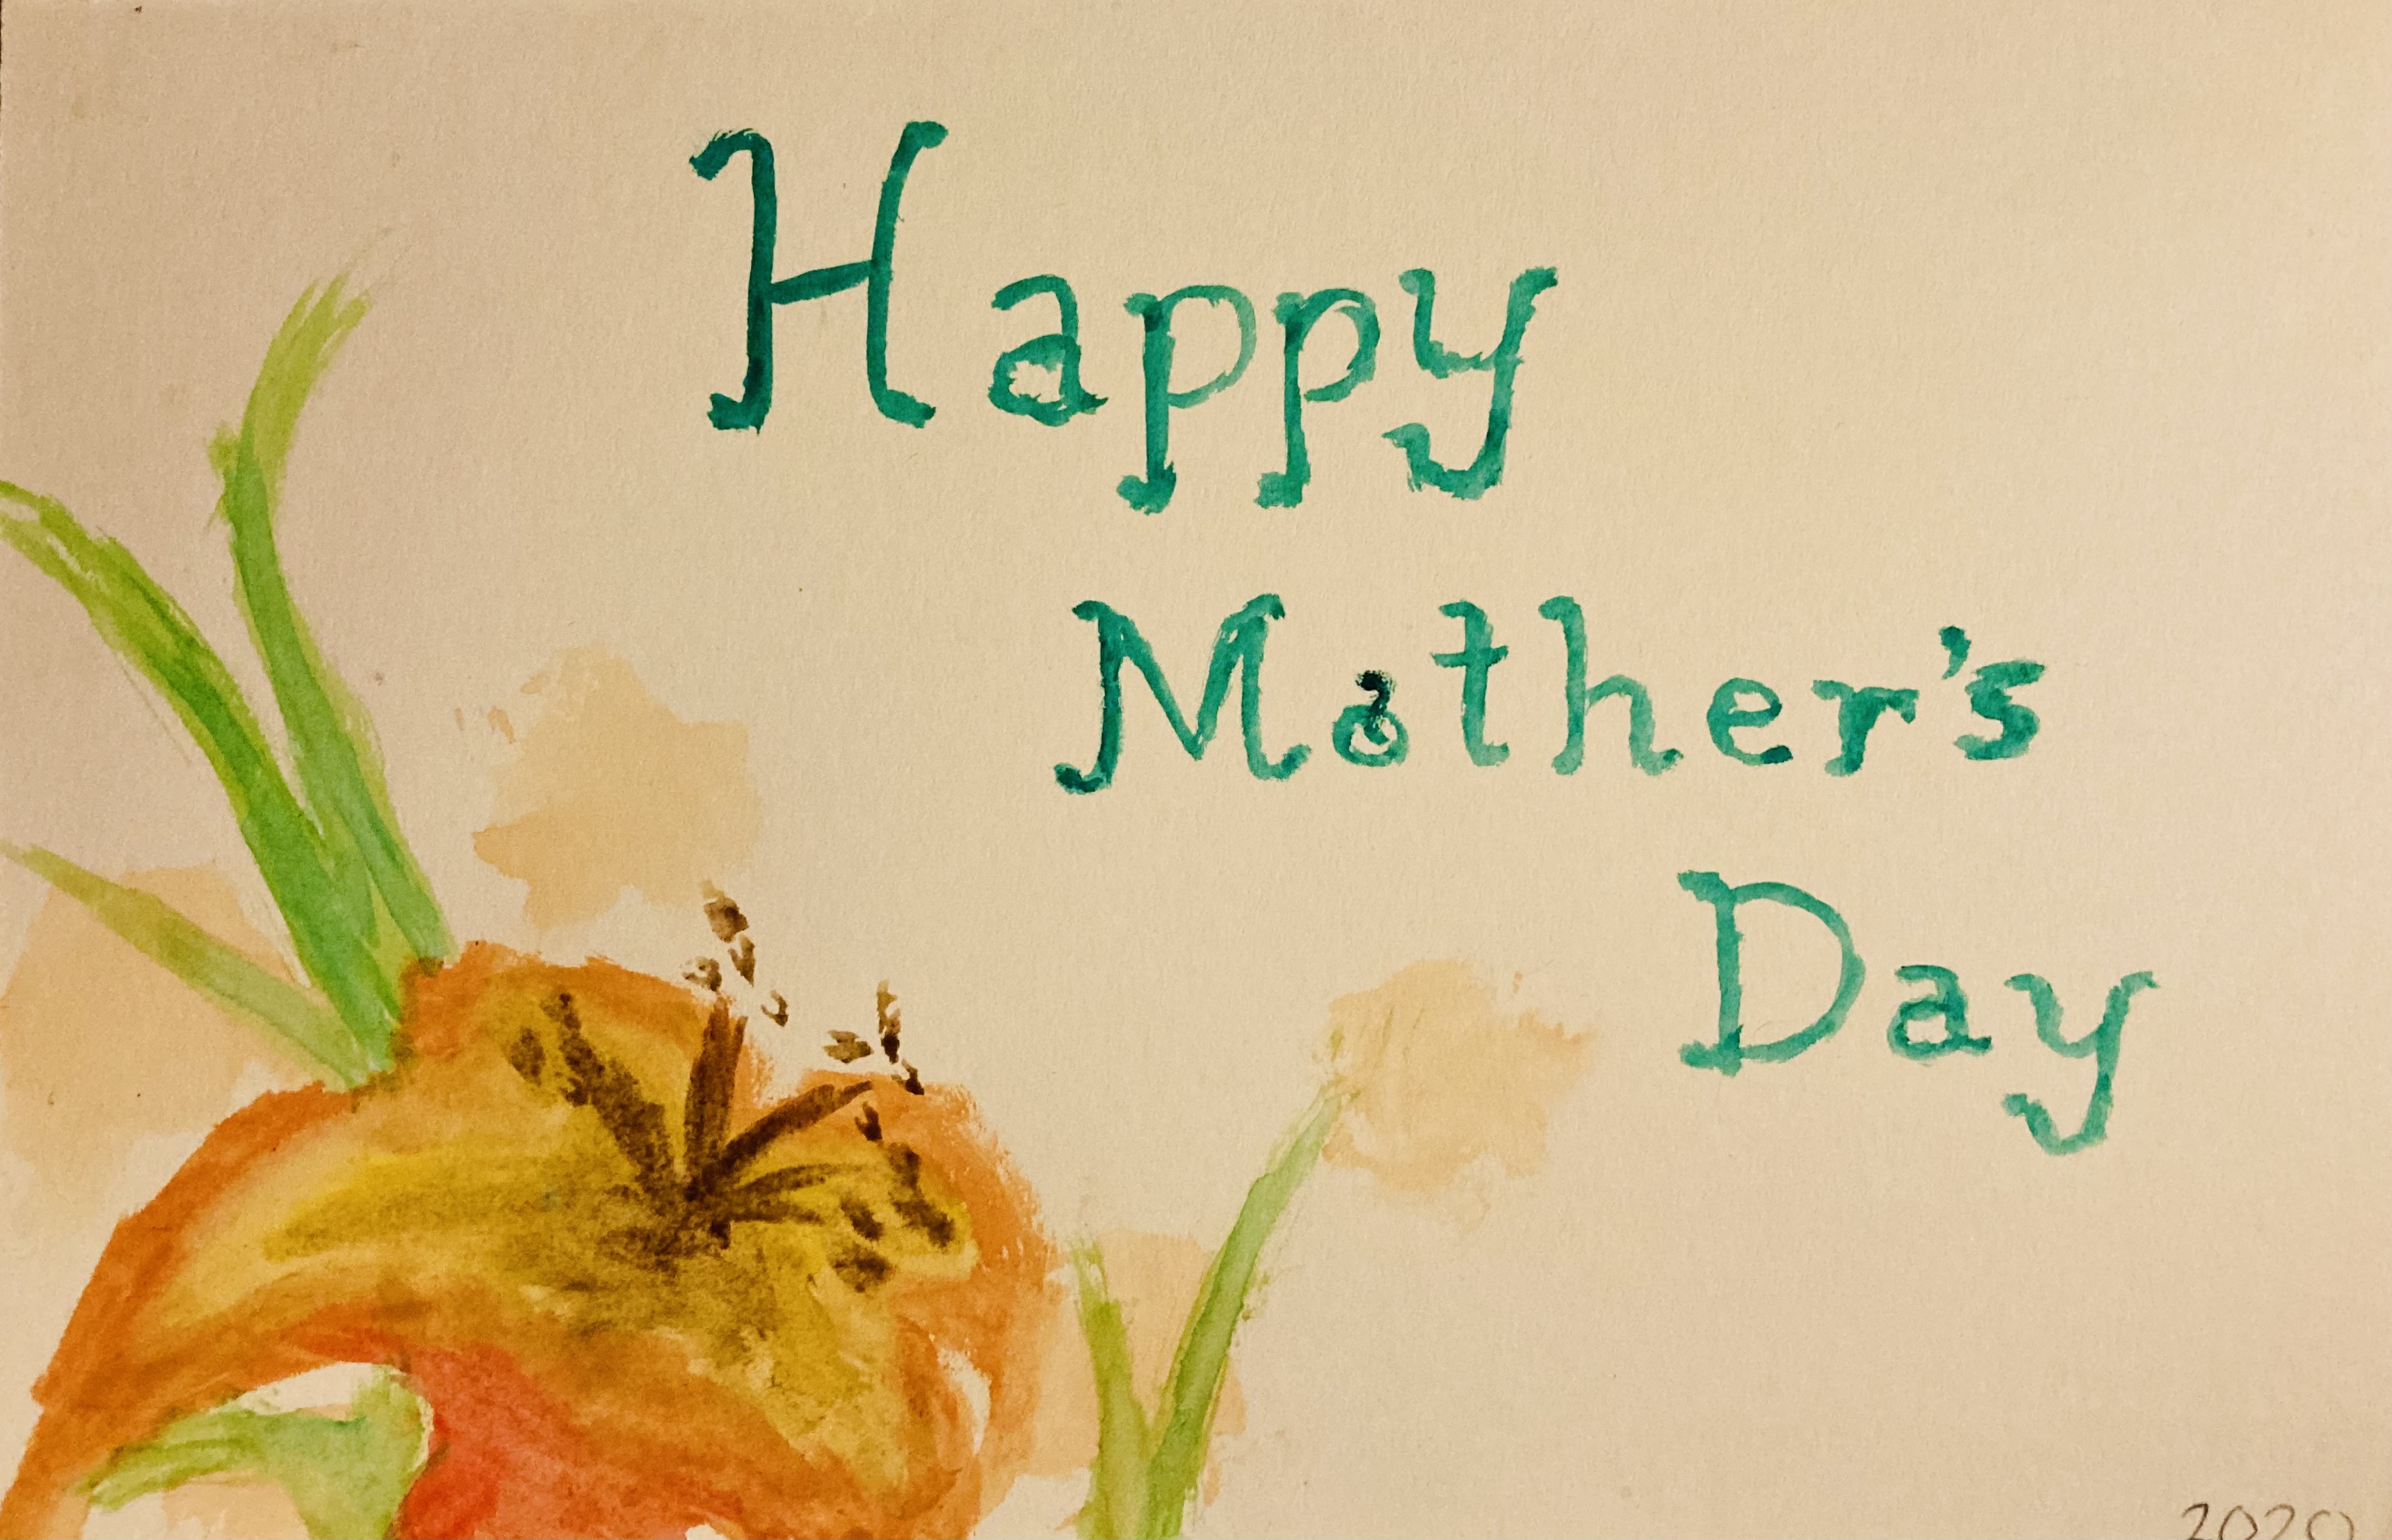 Happy
Mother's
Day
2020